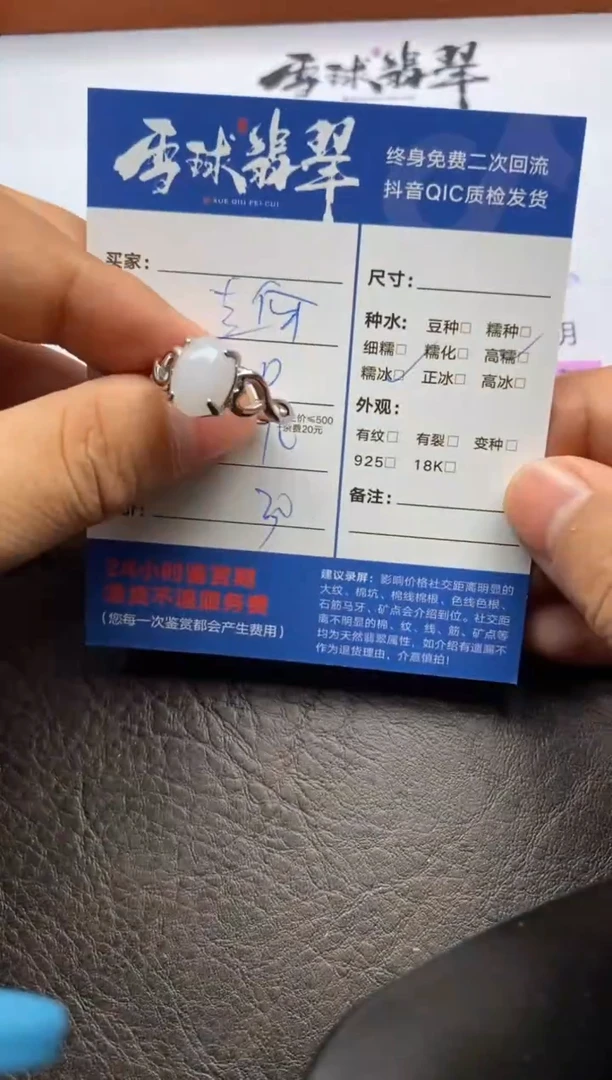 雪球翡翠
雪球翡翠
XUE QIU FEI CUI
终身免费二次回流
抖音QIC质检发货
买家:
尺寸:
种水: 豆种□ 糯种□
细糯□ 糯化□ 高糯□
糯冰□ 正冰□ 高冰□
外观:
有纹□ 有裂□ 变种□
925□ 18K□
备注:
价≤500
费20元
30
月
24小时鉴赏期
(您每一次鉴赏都会产生费用)
建议录屏:影响价格社交距离明显的
大纹、棉坑、棉线棉根、色线色根、
石筋马牙、矿点会介绍到位。社交距
离不明显的棉、纹、线、筋、矿点等
均为天然翡翠属性,如介绍有遗漏不
作为退货理由,介意慎拍!